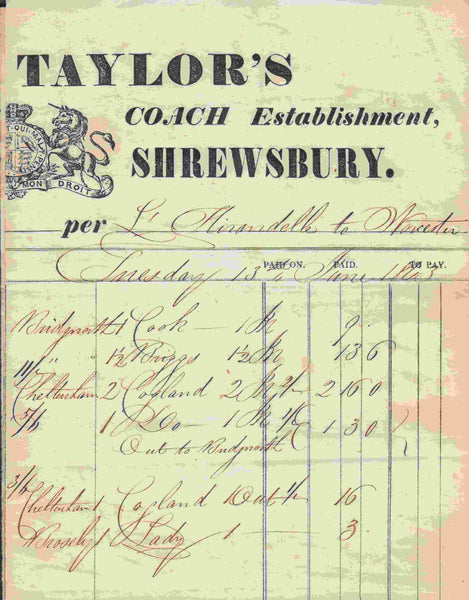 TAYLOR'S
COACH Establishment,
SHREWSBURY.
QUI MAL
MON DROIT
per L'Hirondelle to Worcester
PAID ON. PAID. TO PAY.
Tuesday 13th June 1843
Bridgnorth 1 Cook — 1 In 9.
" " 1½ Briggs 1½ In 13 6
11/
Cheltenham 2 Copland 2 In 2 16 0
5/6 1 Do — 1 In 1 3 0
Out to Bridgnorth
3/6
Cheltenham 1 Copland 1 Out 16
Brosely 1 Lady 1 — 3.